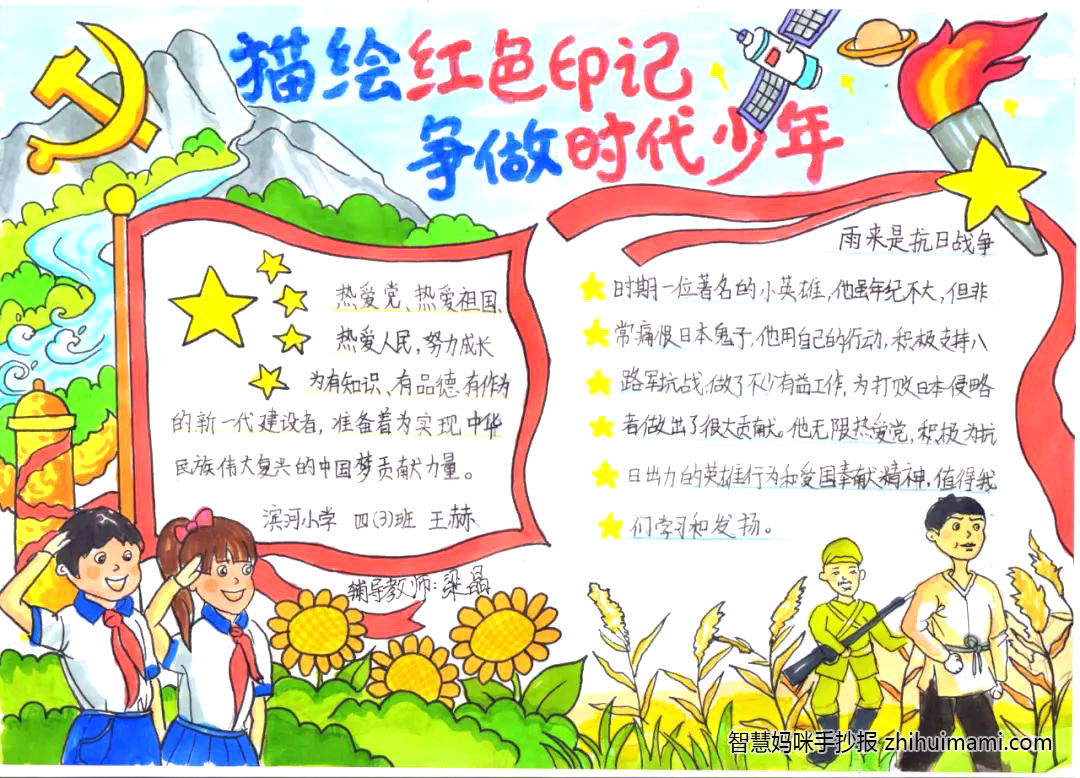 描绘红色印记
争做时代少年
热爱党、热爱祖国、
热爱人民,努力成长
为有知识、有品德、有作为
的新一代建设者,准备着为实现中华
民族伟大复兴的中国梦贡献力量。
滨河小学 四(3)班 王赫
辅导教师:梁晶
雨来是抗日战争
时期一位著名的小英雄,他虽年纪不大,但非
常痛恨日本鬼子,他用自己的行动,积极支持八
路军抗战,做了不少有益工作,为打败日本侵略
者做出了很大贡献。他无限热爱党,积极为抗
日出力的英雄行为和爱国奉献精神,值得我
们学习和发扬。
智慧妈咪手抄报 zhihuimami.com